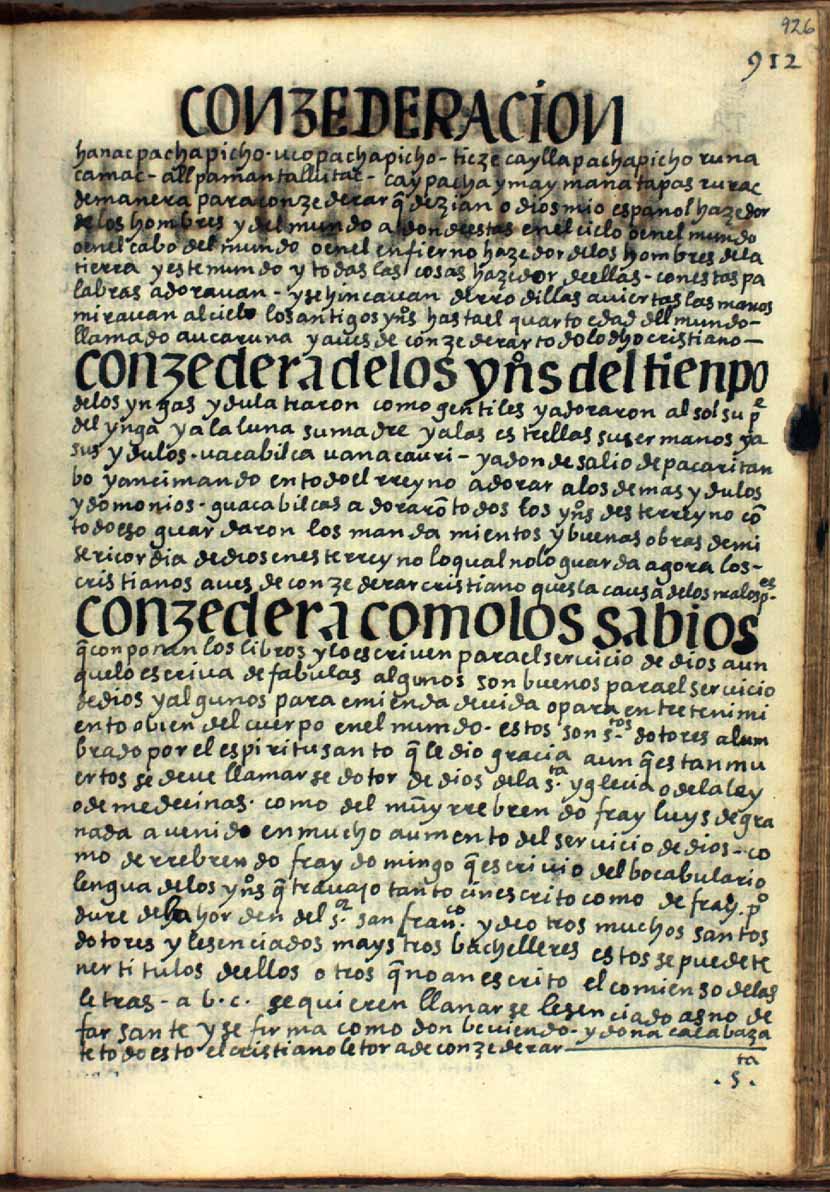 926
912
CONZEDERACION
hanac pacha picho - uco pacha picho - ticze caylla pacha picho runa
camac - allpamanta llutac - cay pacha ymaymanatapas rurac
de manera para conzederar q̃ dezian o dios mio español hazedor
de los hombres y del mundo adonde estas en el cielo o en el mundo
o en el cabo del mundo o en el enfierno hazedor de los hombres de la
tierra y este mundo y todas las cosas hazedor de ellas - con estas pa
labras adorauan - y se hincauan de rrodillas auiertas las manos
mirauan al cielo los antigos yṇs hasta el quarto edad del mundo -
llamado aucaruna y aues de conzederar todo lo dho cristiano -
conzedera de los yṇs del tienpo
de los yngas ydulatraron como gentiles y adoraron al sol su pe
del ynga y a la luna su madre y a las estrellas sus ermanos y a
sus ydulos - uacabilca uanacauri - y adonde salio de pacaritan
bo y ancimando en todo el rreyno adorar a los demas ydulos
y domonios - guacabilcas adorarõ todos los yṇs deste rreyno cõ
todo eso guardaron los mandamientos y buenas obras de mi
sericordia de dios en este rreyno lo qual no lo guarda agora los -
cristianos aues de conzederar cristiano ques la causa de los malos pes
conzedera como los sabios
q̃ conponan los libros y lo escriuen para el seruicio de dios aun
que lo escriua de fabulas algunos son buenos para el seruicio
de dios y algunos para emienda de uida o para entretenimi
ento o bien del cuerpo en el mundo - estos son s.tos dotores alum
brado por el espiritu santo q̃ le dio gracia aunq̃ estan mu
ertos se deue llamarse dotor de dios de la s.ta yglecia o de la ley
o de medecinas - como del mũy rrebrendo fray luys de gra
nada a uenido en mucho aumento del seruicio de dios - co
mo de rrebrendo fray domingo q̃ escriuio del bocabulario
lengua de los yṇs q̃ trauajo tanto cin escrito como de fray po
dure de la horden del s.r san fran.co y de otros muchos santos
dotores y lesenciados maystros bachelleres estos se puede te
ner titulos de ellos otros q̃ no an escrito el comienso de las
letras - a b c. se quieren llanarse lesenciado asno de
farsante y se firma como don beuiendo - y dona calabaza
te todo esto el cristiano letor a de conzederar
ta
. s .